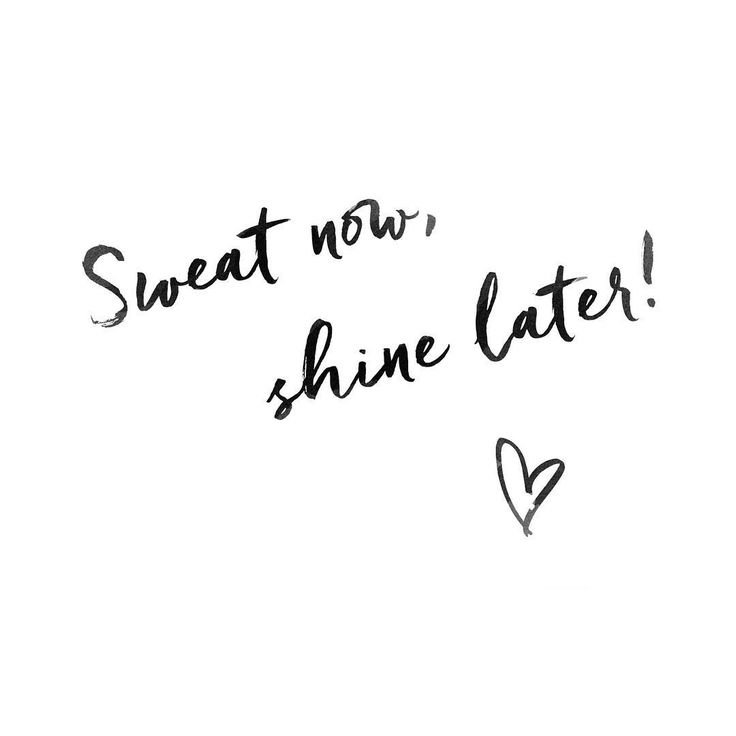 Sweat now,
shine later!